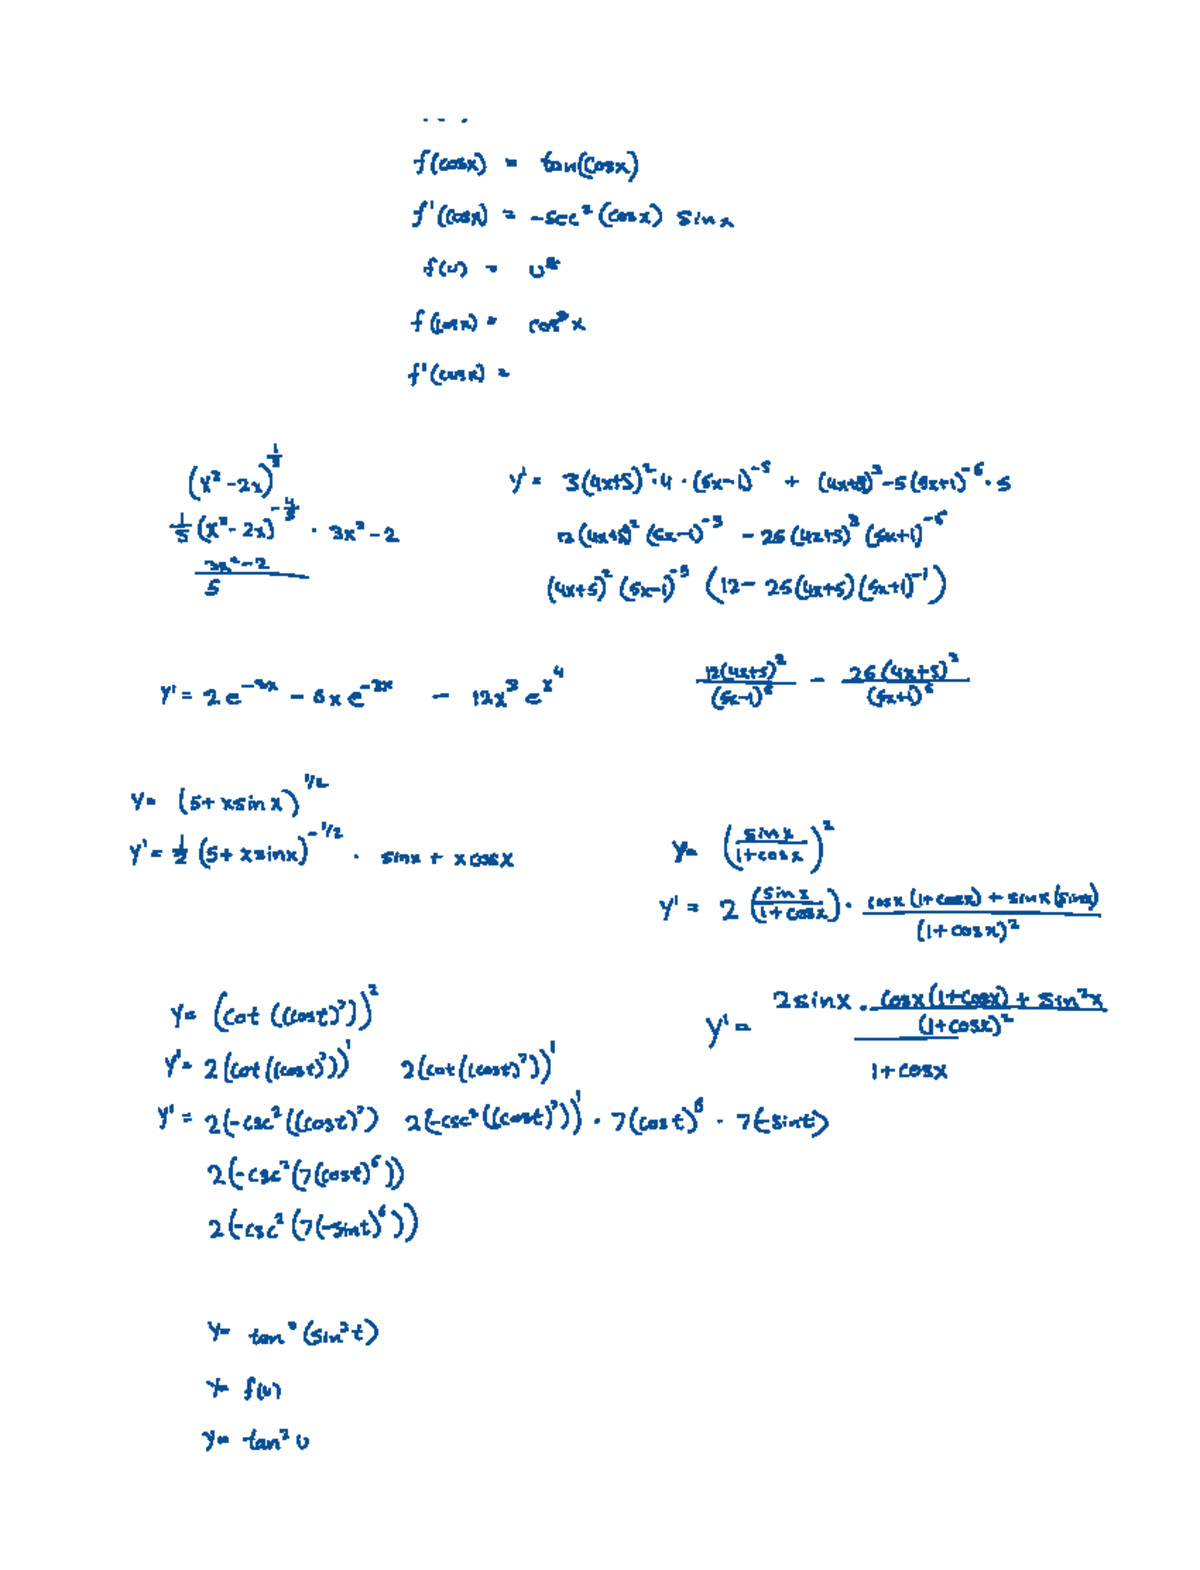 f(cosx) = tan(cosx)
f'(cosx) = -sec² (cosx) sinx
f(u) =
f(cosx) =
f'(cosx) =
-2x)
-2x) · 3x² - 2
5
y' = 3(4x+5)² · 4 · (5x-1)⁻⁵ + (4x+5)³ -5(5x+1)⁻⁶ · 5
12(4x+5)² (5x-1) - 25(4x+5)³ (5x+1)
(4x+5)² (5x-1) (12 - 25(4x+5)(5x+1)⁻¹)
y' = 2e - 6xe - 12x³ e^x⁴
12(4x+5)² - 25(4x+5)
y = (5 + xsinx)^1/2
y' = 1/2 (5 + xsinx)^-1/2 · sinx + xcosx
y = (sinx / 1+cosx)²
y' = 2 (sinx / 1+cosx) · cosx(1+cosx) + sinx(sinx) / (1+cosx)²
y = (cot((cost)⁷))²
y' = 2sinx · cosx(1+cosx) + sin²x / (1+cosx)² / 1+cosx
y' = 2(cot((cost)⁷))¹ 2(cot((cost)⁷))¹
y' = 2(-csc²((cost)⁷) 2(-csc²((cost)⁷))¹ · 7(cost)⁶ · 7(-sint)
2(-csc²(7(cost)⁶))
2(-csc²(7(-sint)⁶))
y = tan (sin t)
y = f(u)
y = tan² u